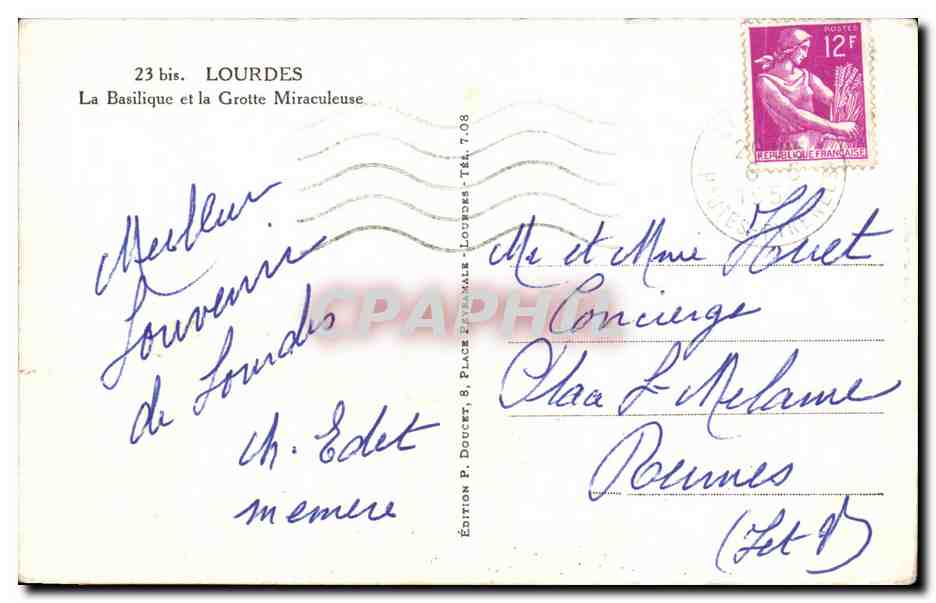 23 bis. LOURDES
La Basilique et la Grotte Miraculeuse
Meilleur
Souvenir
de Lourdes
Ch. Edet
memere
ÉDITION P. DOUCET, 8, PLACE PEYRAMALE - LOURDES - TÉL. 7.08
POSTES
12F
REPUBLIQUE FRANÇAISE
Mr et Mme Huet
Concierge
Place St Melaine
Rennes
(I et V)
CPAPHIL